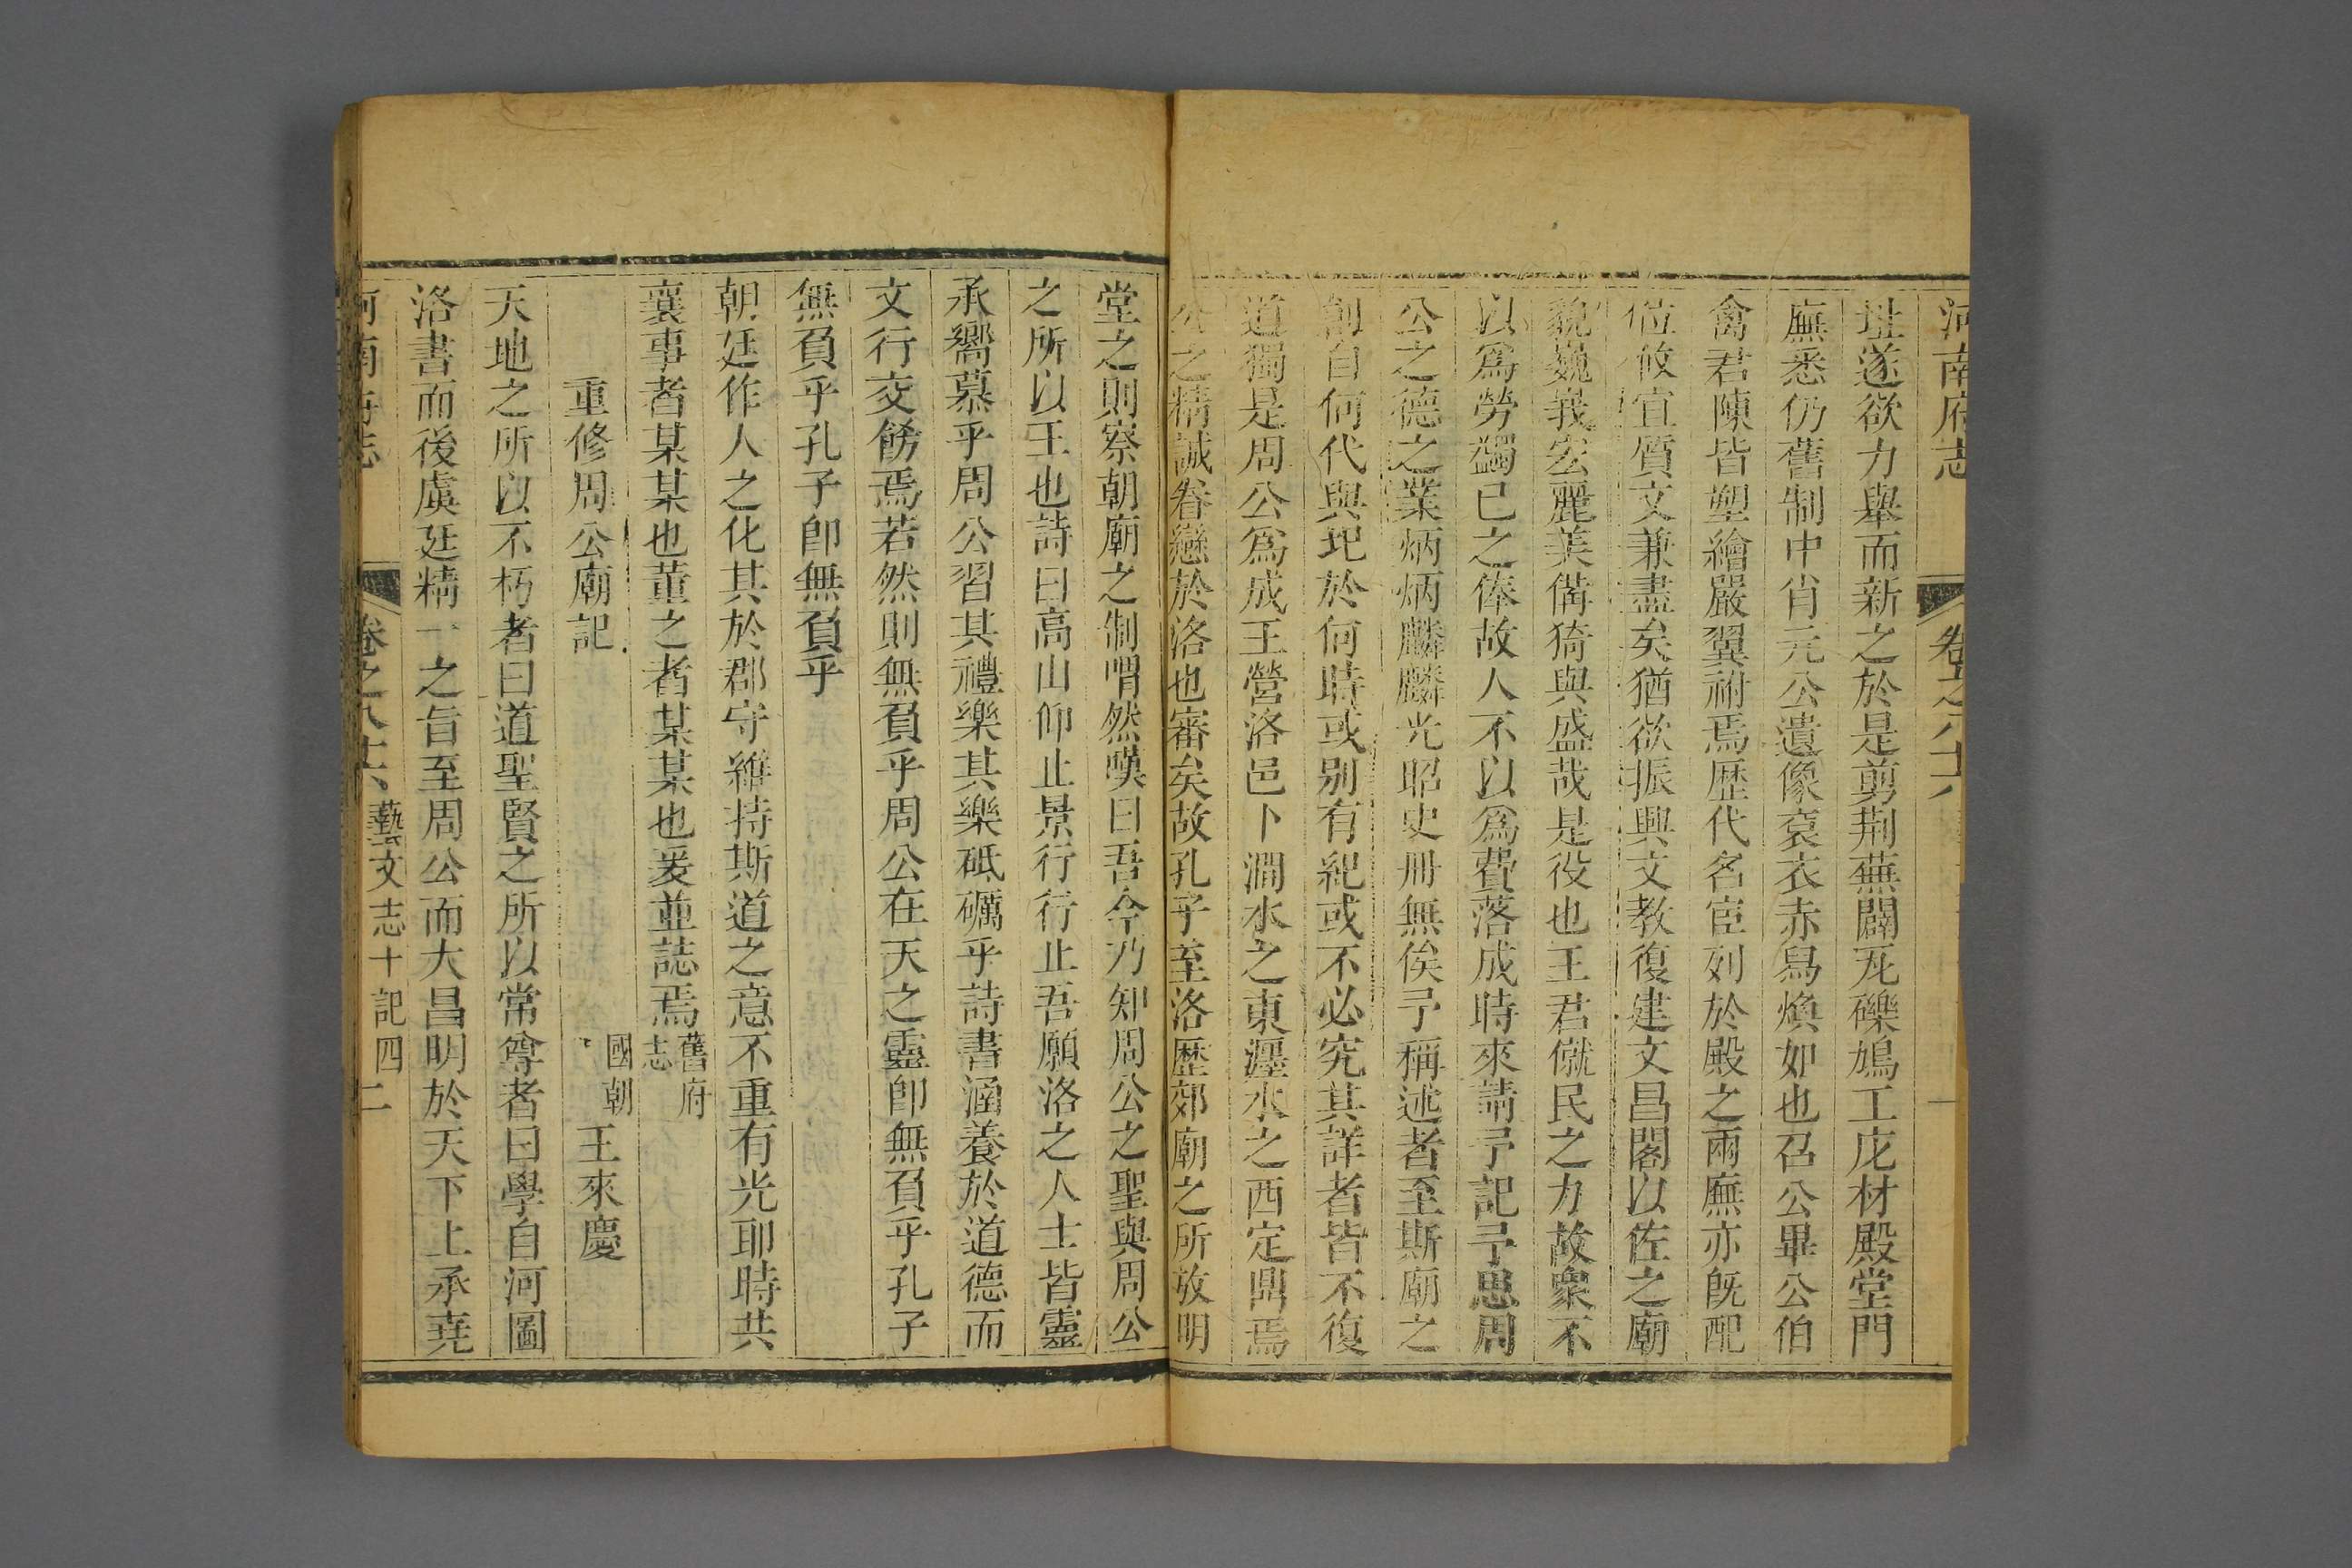 河南府志 卷之八十六 一
址遂欲力舉而新之於是剪荆蕪闢瓦礫鳩工庀材殿堂門
廡悉仍舊制中肖元公遺像袞衣赤舄煥如也召公畢公伯
禽君陳皆塑繪嚴翼祔焉歷代名宦列於殿之兩廡亦旣配
位攸宜質文兼盡矣猶欲振興文教復建文昌閣以佐之廟
貌巍峩宏麗美備猗與盛哉是役也王君僦民之力故衆不
以爲勞蠲已之俸故人不以爲費落成時來請予記予思周
公之德之業炳炳麟麟光昭史冊無俟予稱述者至斯廟之
創自何代與圯於何時或別有紀或不必究其詳者皆不復
道獨是周公爲成王營洛邑卜澗水之東瀍水之西定鼎焉
公之精誠眷戀於洛也審矣故孔子至洛歷郊廟之所放明
堂之則察朝廟之制喟然嘆曰吾今乃知周公之聖與周公
之所以王也詩曰高山仰止景行行止吾願洛之人士皆靈
承嚮慕乎周公習其禮樂其樂砥礪乎詩書涵養於道德而
文行交飭焉若然則無負乎周公在天之靈卽無負乎孔子
無負乎孔子卽無負乎
朝廷作人之化其於郡守維持斯道之意不重有光耶時共
襄事者某某也董之者某某也爰並誌焉舊府志
重修周公廟記 國朝 王來慶
天地之所以不朽者曰道聖賢之所以常尊者曰學自河圖
洛書而後虞廷精一之旨至周公而大昌明於天下上承堯
河南府志 卷之八十六 藝文志十記四 二